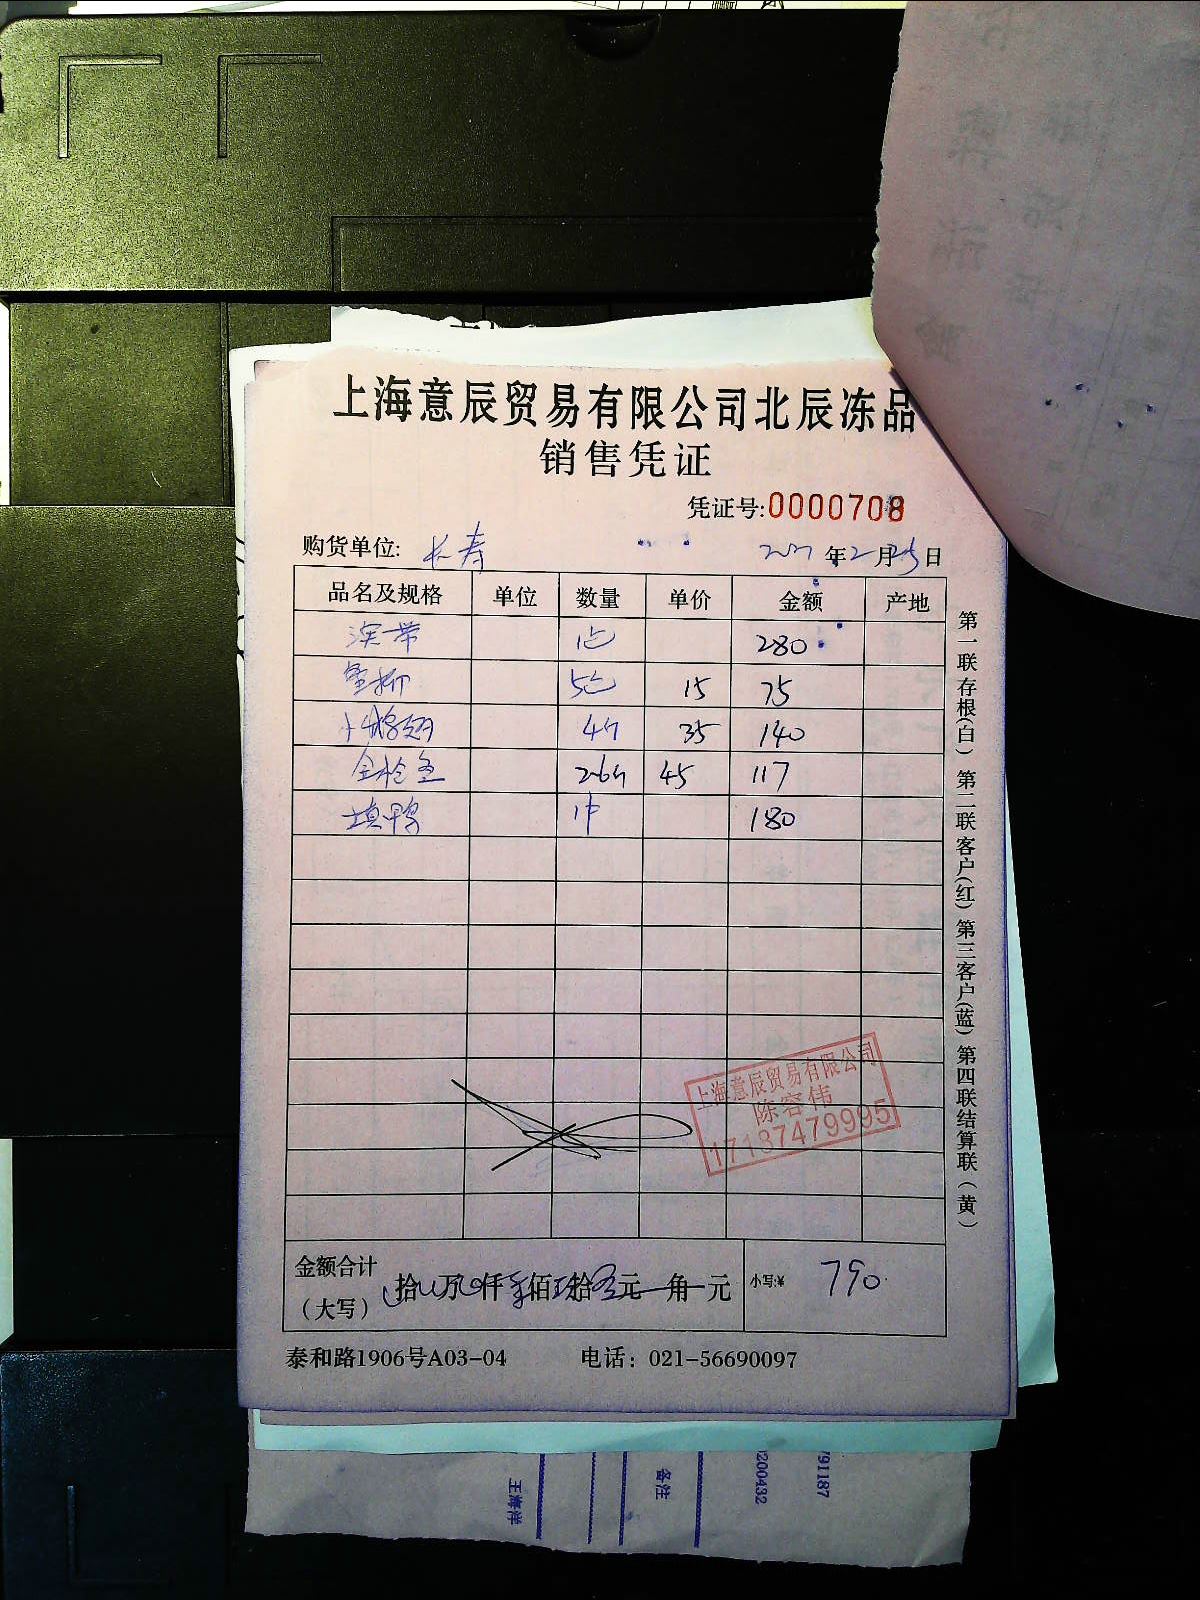 上海意辰贸易有限公司北辰冻品
销售凭证
凭证号:0000708
购货单位: 长寿 年2月25日
品名及规格 单位 数量 单价 金额 产地
280
5 15 75
4 35 140
2.6 45 117
填鸭 1件 180
上海意辰贸易有限公司
陈容伟
17137479995
金额合计
(大写) 拾 万 仟 佰 拾 元 角 元 小写:¥ 790
泰和路1906号A03-04 电话: 021-56690097
第一联存根(白) 第二联客户(红) 第三客户(蓝) 第四联结算联(黄)
王海洋
备注
200432
791187